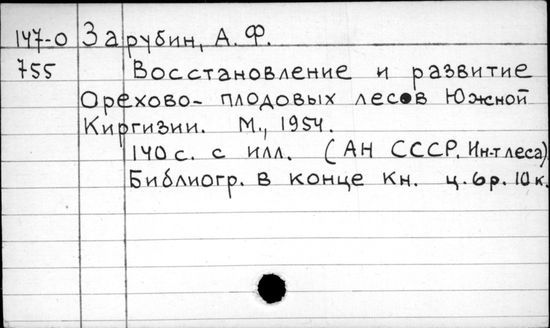 147-0 Зарубин, А. Ф.
755 Восстановление и развитие
Орехово- плодовых лесов Южной
Киргизии. М., 1954.
140 с. с илл. (АН СССР. Ин-т леса)
Библиогр. в конце кн. ц. 6 р. 10 к.